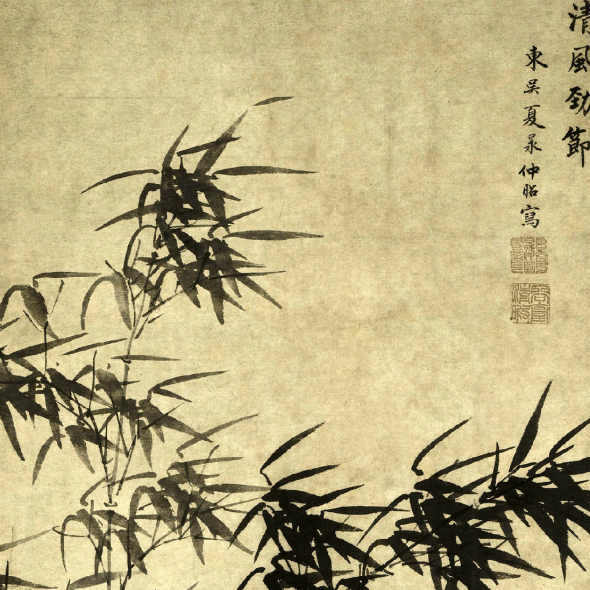 清風勁節
東吳夏㫤仲昭寫